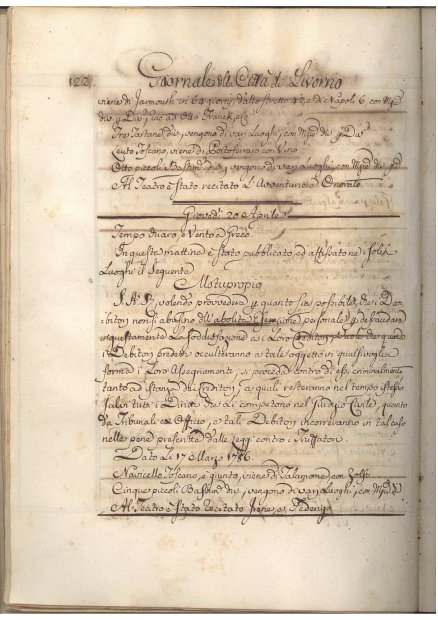 122. Giornale della Città di Livorno
viene di Jarmouth in 64 giorni, dallo stretto 42, e di Napoli 6, con
div. p. Div. ad
Tre Tartane div. vengono di varj Luoghi, con Mj. div. p. Div.
Leuto Toscano, viene di Portoferrajo con Vino
Otto piccoli Bastim. div., vengono di varj Luoghi, con Mj. div. p. D
Al Teatro è stato recitato L'Avventuriere Onorato
Giovedì 20 Aprile
Tempo Chiaro, e Vento a Greco
In questa mattina è stato pubblicato, ed affisso ne i soliti
Luoghi il Seguente
Motuproprio
S.A.R. volendo provvedere per quanto sia possibile, che i De-
bitori non si abusino dell'abolita Esecuzione personale per defraudare
ingiustamente La soddisfazione a i Loro Creditori, vuole che quando
i Debitori predetti occulteranno a tale oggetto in qualsivoglia
forma i Loro Assegnamenti, si proceda contro di essi criminalmente
tanto ad istanza dei Creditori, a quali resteranno nel tempo stesso
salvi tutti i Diritti che gli competono nel Giudizio Civile, quanto
da Tribunali ex Officio, e tali Debitori incorreranno in tal caso
nelle pene prescritte dalle Leggi contro i Truffatori
Dato Li 17 Marzo 1786
Navicello Toscano, è giunto, viene di Talamone con Zolfo
Cinque piccoli Bastim. div., vengono di varj Luoghi, con Mj. D
Al Teatro è stato Recitato Irene, e Federigo